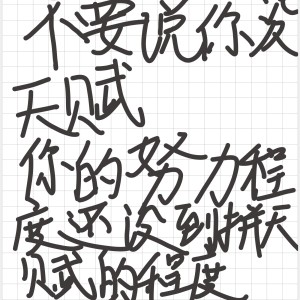 不要说你没
天赋
你的努力程
度还没到拼天
赋的程度